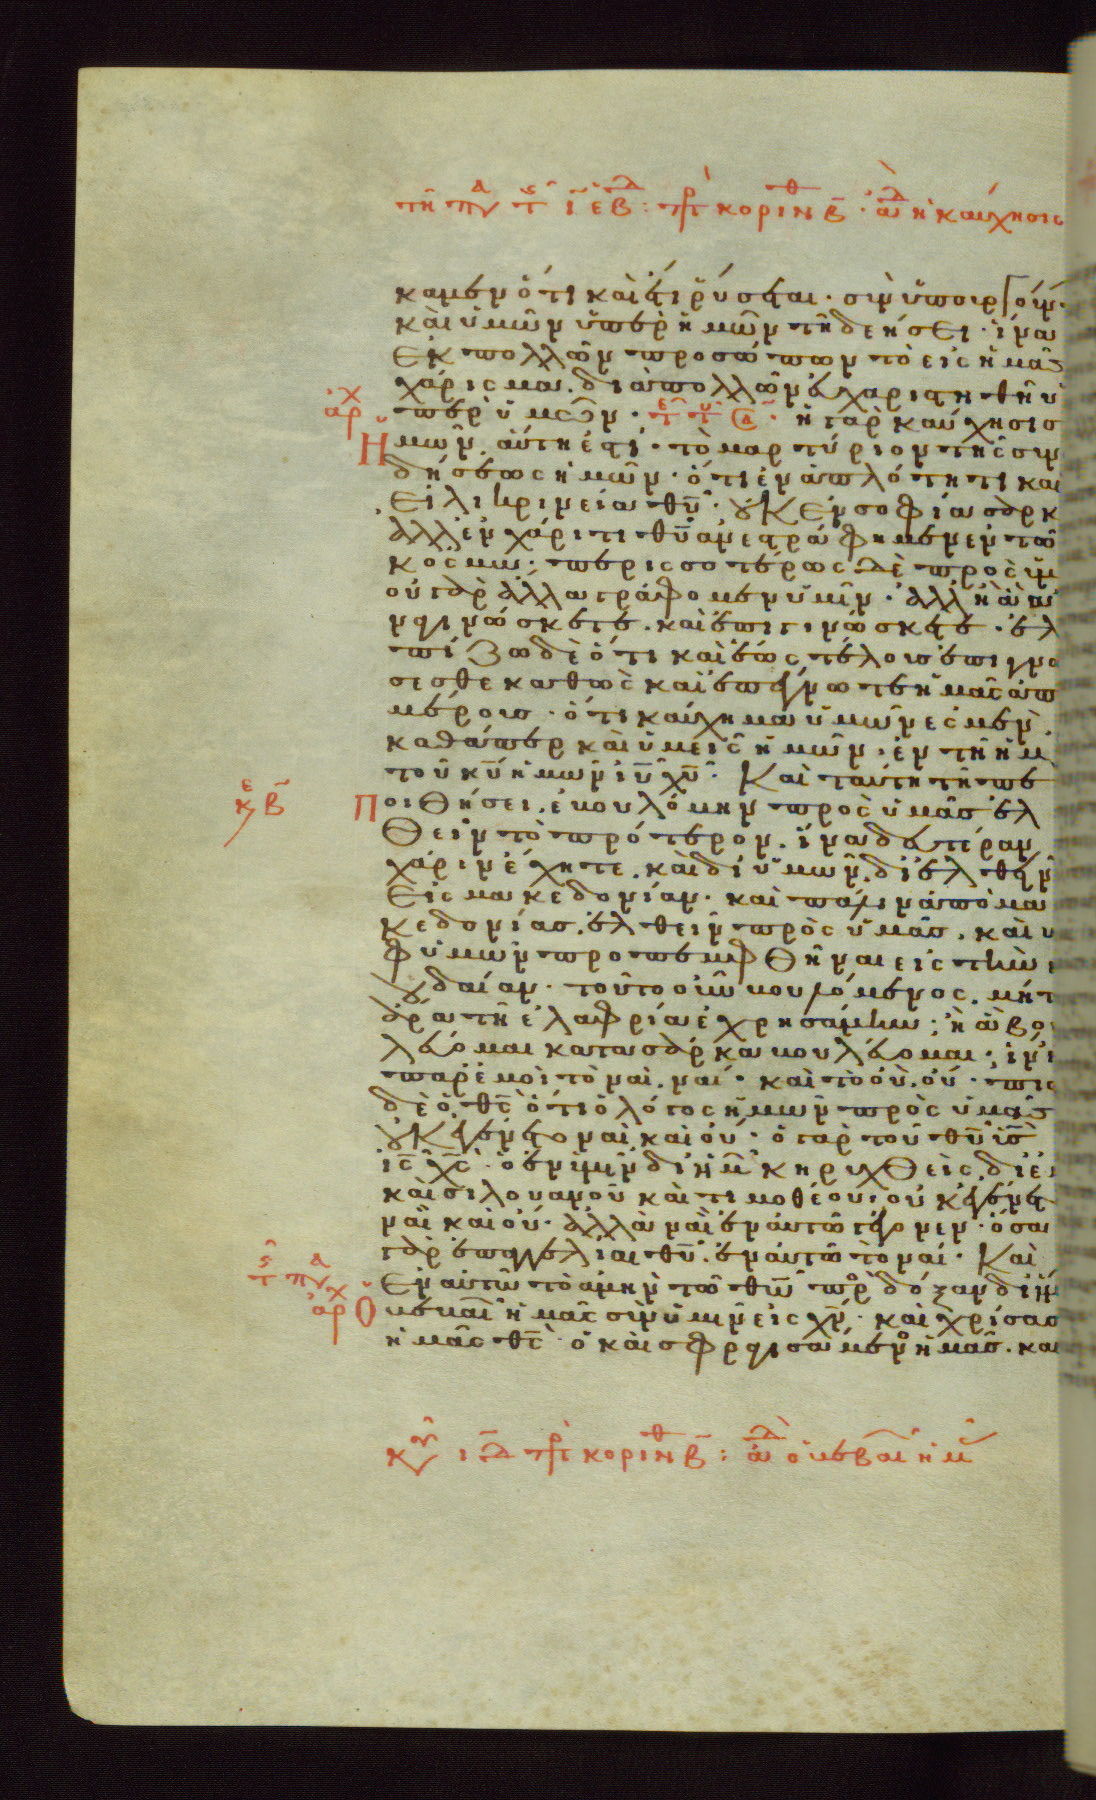 τῆ παρ τ ιβ ἑβδ: πρ κορινθ β · ἀδ ἡ καύχησις
καμεν ὅτι καὶ ἔτι ῥύσεται · συνυπουργούν
καὶ ὑμῶν ὑπὲρ ἡμῶν τῇ δεήσει · ἵνα
ἐκ πολλῶν προσώπων τὸ εἰς ἡμᾶς
χάρισμα. διὰ πολλῶν εὐχαριστηθῆ ὑ
αρχ
πὲρ ὑμῶν · ἡ γὰρ καύχησις
ἡμῶν αὕτη ἐστί · τὸ μαρτύριον τῆς συν
δήσεως ἡμῶν · ὅτι ἐν ἁπλότητι καὶ
εἰλικρινεία θυ · οὐκ ἐν σοφία σαρκ
ἀλλ' ἐν χάριτι θυ ἀνεστράφημεν ἐν τῶ
κόσμω · περισσοτέρως δὲ πρὸς ὑμ
οὐ γὰρ ἄλλα γράφομεν ὑμῖν · ἀλλ' ἢ ἃ ἀ
ναγινώσκετε · καὶ ἐπιγινώσκετε · ἐλ
πίζω δὲ ὅτι καὶ ἕως τέλους ἐπιγνώ
σεσθε καθὼς καὶ ἐπέγνωτε ἡμᾶς ἀπ
μέρους · ὅτι καύχημα ὑμῶν ἐσμὲν
καθάπερ καὶ ὑμεῖς ἡμῶν · ἐν τῇ ἡμ
τοῦ κυ ἡμῶν ιυ χυ · Καὶ ταύτη τῇ πε
κε β
ποιθήσει. ἐβουλόμην πρὸς ὑμᾶς ἐλ
θεῖν τὸ πρότερον. ἵνα δευτέραν
χάριν ἔχητε. καὶ δι' ὑμῶν διελθεῖν
εἰς μακεδονίαν · καὶ πάλιν ἀπὸ μα
κεδονίας ἐλθεῖν πρὸς ὑμᾶς. καὶ ὑ
φ' ὑμῶν προπεμφθῆναι εἰς τὴν ι
ουδαίαν · τοῦτο οὖν βουλόμενος. μήτ
ἄρα τῇ ἐλαφρία ἐχρησάμην; ἢ ἃ βου
λεύομαι κατὰ σάρκα βουλεύομαι · ἵν
παρ' ἐμοὶ τὸ ναὶ ναί · καὶ τὸ οὐ. οὔ · πισ
δὲ ὁ θς ὅτι ὁ λόγος ἡμῶν πρὸς ὑμᾶς
οὐκ ἐγένετο ναὶ καὶ οὔ · ὁ γὰρ τοῦ θυ υς
ις χς · ὁ ἐν ὑμῖν δι' ἡμ κηρυχθεὶς. δι' ἐ
καὶ σιλουανοῦ καὶ τιμοθέου · οὐκ ἐγένετ
ναὶ καὶ οὔ · ἀλλὰ ναὶ ἐν αὐτῶ γέγονεν · ὅσαι
γὰρ ἐπαγγελίαι θυ. ἐν αὐτῶ τὸ ναί · Καὶ
ἐν αὐτῶ τὸ ἀμὴν τῶ θω πρ δόξαν δι' ἡμ
αρχ
Ὁ βεβαι ἡμᾶς σὺν ὑμῖν εἰς χν · καὶ χρίσας
ἡμᾶς θς · ὁ καὶ σφραγισάμενος ἡμᾶς. καὶ
κυ ιδ πρ κορινθ β : ἀδ ὁ βεβαι ἡμ